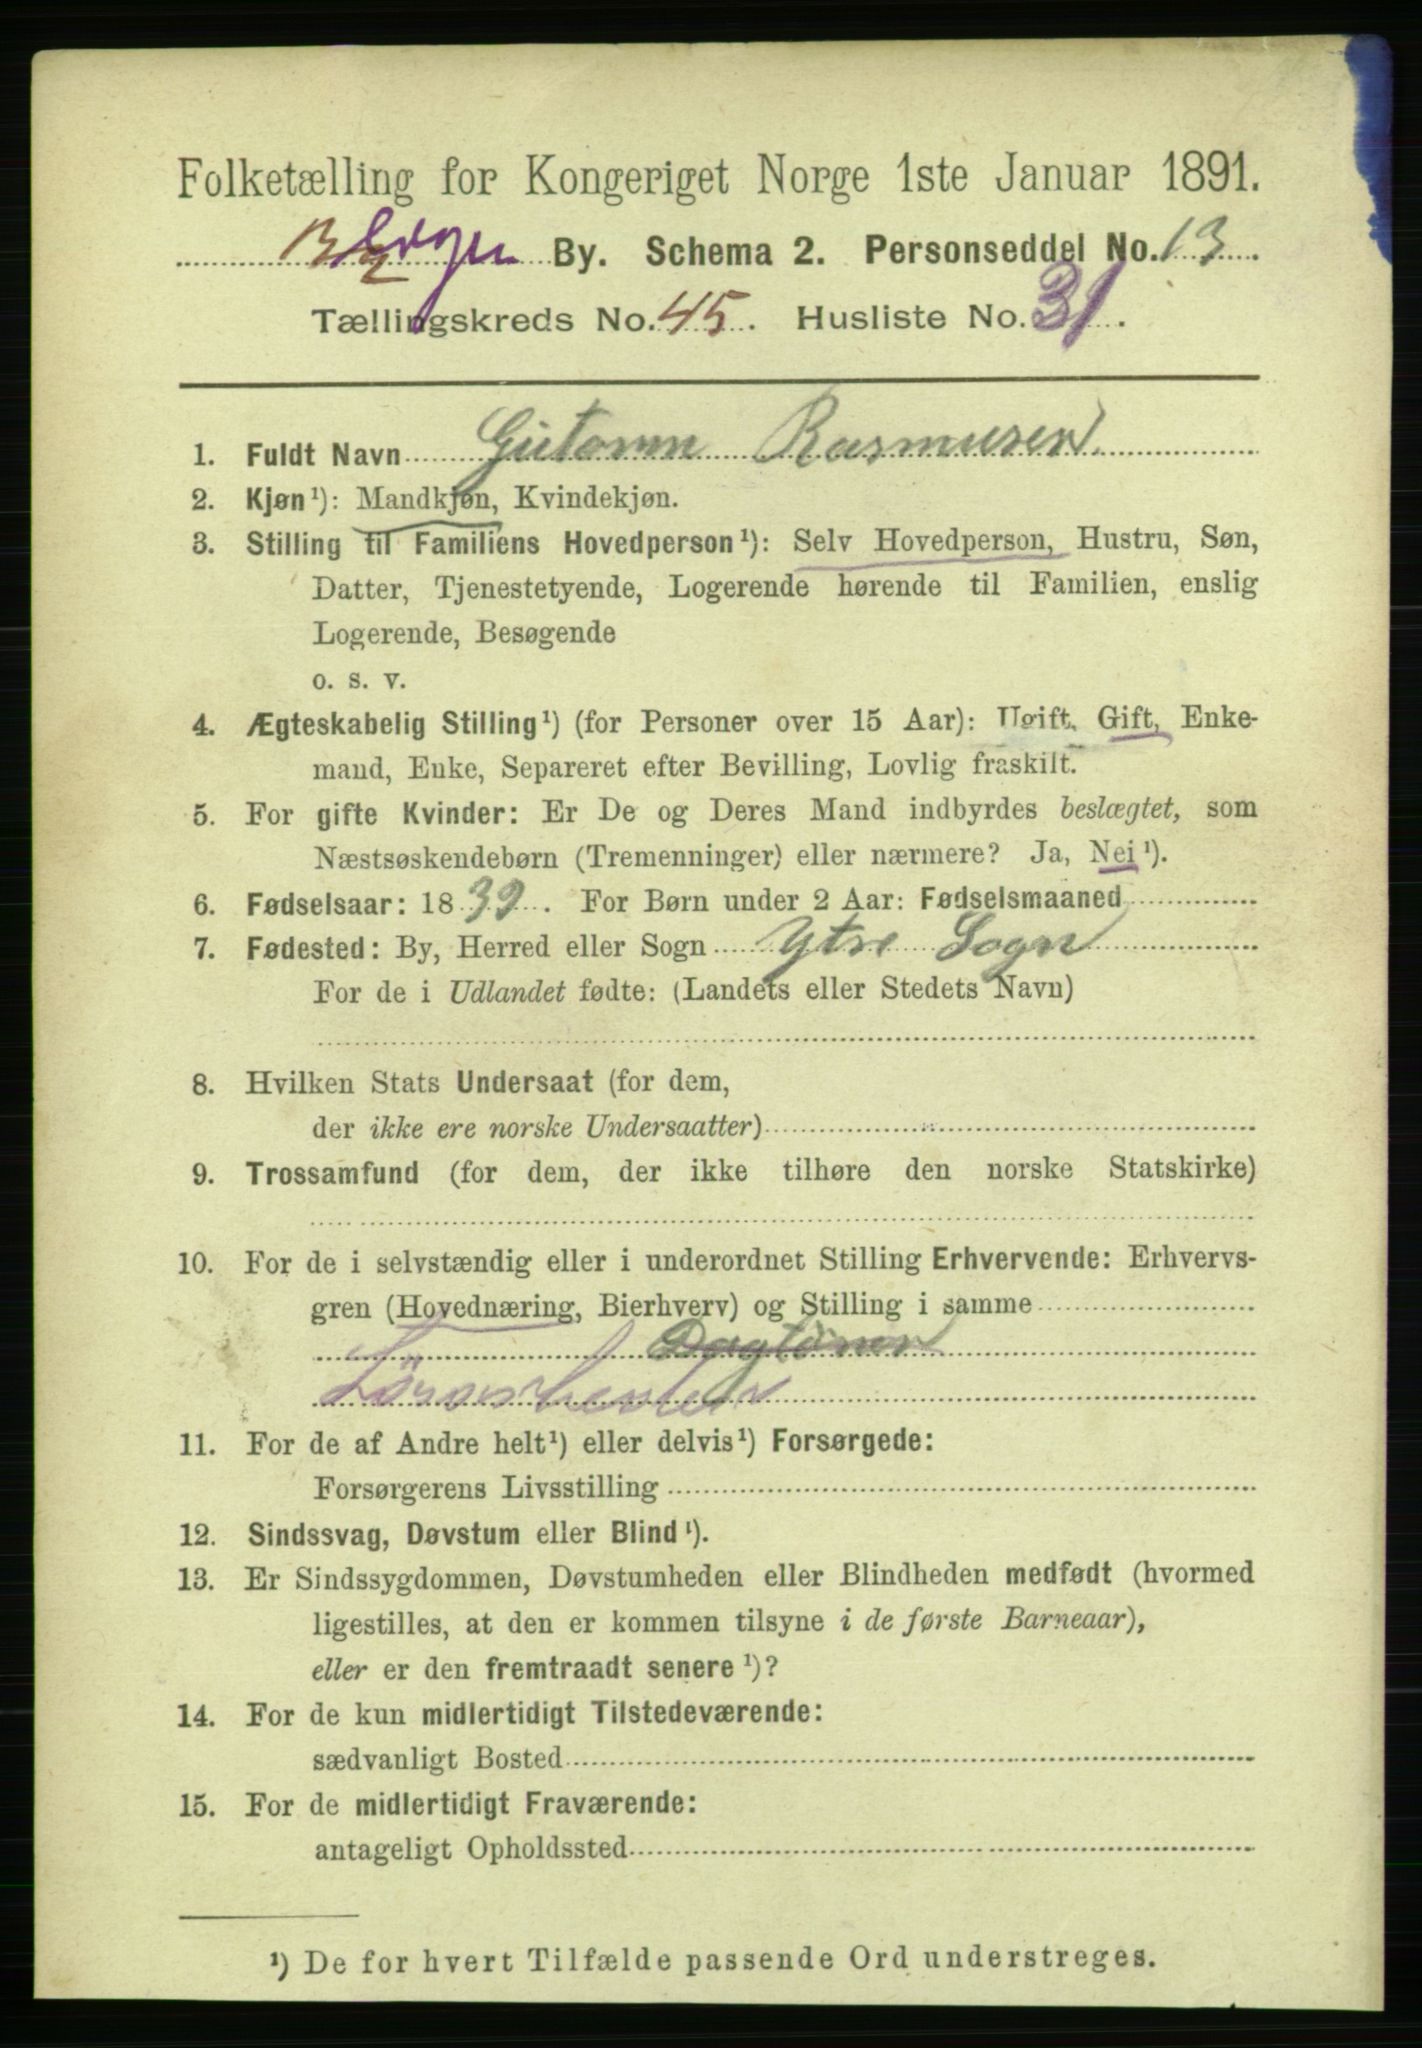 Folketælling for Kongeriget Norge 1ste Januar 1891.
Bergen By. Schema 2. Personseddel No. 13.
Tællingskreds No. 45. Husliste No. 31.
1. Fuldt Navn Gutorm Rasmusen
2. Kjøn¹): Mandkjøn, Kvindekjøn.
3. Stilling til Familiens Hovedperson¹): Selv Hovedperson, Hustru, Søn,
Datter, Tjenestetyende, Logerende hørende til Familien, enslig
Logerende, Besøgende
o. s. v.
4. Ægteskabelig Stilling¹) (for Personer over 15 Aar): Ugift, Gift, Enke-
mand, Enke, Separeret efter Bevilling, Lovlig fraskilt.
5. For gifte Kvinder: Er De og Deres Mand indbyrdes beslægtet, som
Næstsøskendebørn (Tremenninger) eller nærmere? Ja, Nei¹).
6. Fødselsaar: 1839. For Børn under 2 Aar: Fødselsmaaned
7. Fødested: By, Herred eller Sogn Ytre Sogn
For de i Udlandet fødte: (Landets eller Stedets Navn)
8. Hvilken Stats Undersaat (for dem,
der ikke ere norske Undersaatter)
9. Trossamfund (for dem, der ikke tilhøre den norske Statskirke)
10. For de i selvstændig eller i underordnet Stilling Erhvervende: Erhvervs-
gren (Hovednæring, Bierhverv) og Stilling i samme
Daglönner
11. For de af Andre helt¹) eller delvis¹) Forsørgede:
Forsørgerens Livsstilling
12. Sindssvag, Døvstum eller Blind¹).
13. Er Sindssygdommen, Døvstumheden eller Blindheden medfødt (hvormed
ligestilles, at den er kommen tilsyne i de første Barneaar),
eller er den fremtraadt senere¹)?
14. For de kun midlertidigt Tilstedeværende:
sædvanligt Bosted
15. For de midlertidigt Fraværende:
antageligt Opholdssted
¹) De for hvert Tilfælde passende Ord understreges.